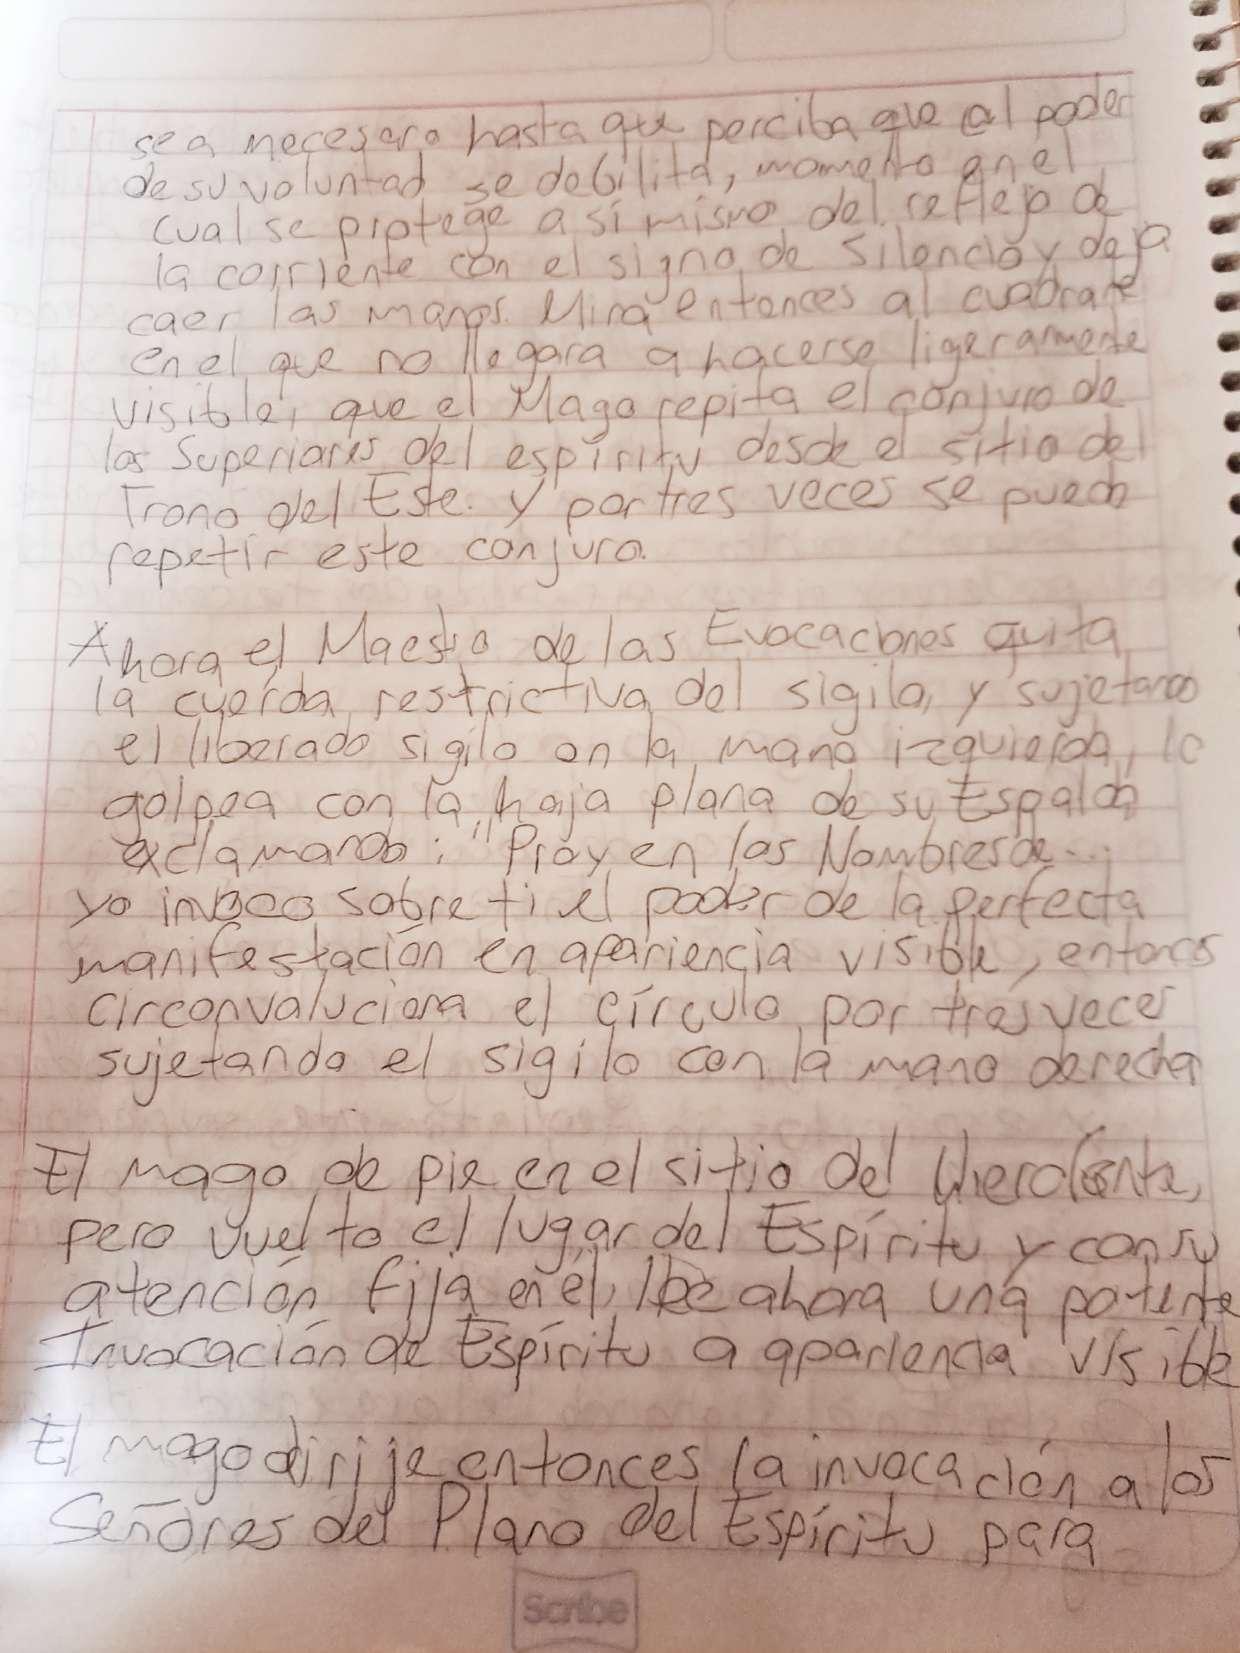 sea necesaro hasta que perciba que el poder
de su voluntad se debilita, momento en el
cual se protege a sí mismo del reflejo de
la corriente con el signo de Silencio y deja
caer las manos. Mira entonces al cuadrante
en el que no llegara a hacerse ligeramente
visible, que el Mago repita el conjuro de
los Superiores del espíritu desde el sitio del
Trono del Este. y por tres veces se puede
repetir este conjuro.
Ahora el Maestro de las Evocaciones quita
la cuerda restrictiva del sigilo, y sujetando
el liberado sigilo en la mano izquierda, lo
golpea con la hoja plana de su Espada
exclamando: "Por y en los Nombres de...
yo invoco sobre ti el poder de la perfecta
manifestación en apariencia visible, entonces
circonvaluciona el círculo por tres veces
sujetando el sigilo con la mano derecha
El mago de pie en el sitio del
pero vuelto el lugar del Espíritu y con su
atención fija en él, lee ahora una potente
Invocación de Espíritu a apariencia visible
El mago dirije entonces la invocación a los
Señores del Plano del Espíritu para
Scribe